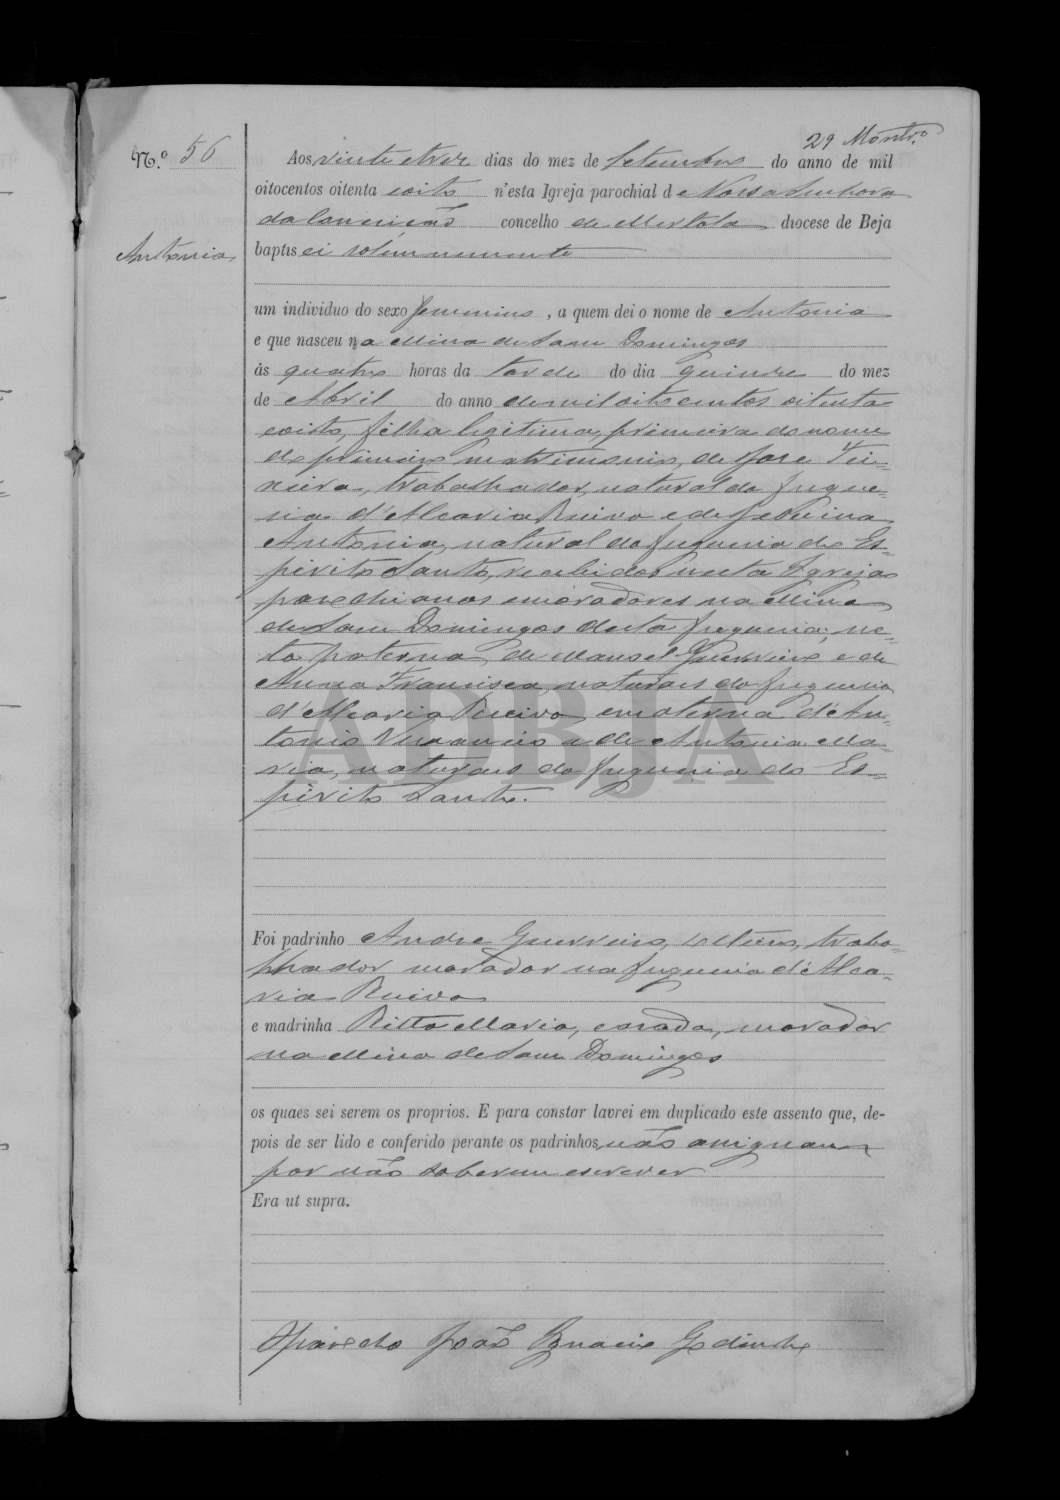 29 Montr.º
N.º 56
Aos vinte e tres dias do mez de Setembro do anno de mil
oitocentos oitenta e oito n'esta Igreja parochial de Nossa Senhora
da Conceição concelho de Mertola diocese de Beja
Antonia
baptisei solemnemente
um individuo do sexo femenino, a quem dei o nome de Antonia
e que nasceu na Mina de Sam Domingos
ás quatro horas da tarde do dia quinze do mez
de Abril do anno de mil oito centos oitenta
e oito, filha legitima, primeira do nome
do primeiro matrimonio, de José
trabalhador, natural da fregue-
sia d'Alcaria Ruiva e de
Antonia, natural da freguesia do Es-
pirito Santo, recebidos nesta Igreja
parochianos e moradores na Mina
de Sam Domingos desta freguesia; ne-
ta paterna, de Manoel Guerreiro e de
Anna Francisca, naturaes da freguesia
d'Alcaria Ruiva, e materna d'An-
tonio Venancio e de Antonia Ma-
ria, naturaes da freguesia do Es-
pirito Santo.
ADBJA
Foi padrinho Andre Guerreiro, solteiro, traba-
lhador morador na freguesia d'Alca-
ria Ruiva
e madrinha Ritta Maria, casada, morador
na Mina de Sam Domingos
os quaes sei serem os proprios. E para constar lavrei em duplicado este assento que, de-
pois de ser lido e conferido perante os padrinhos, não assignam
por não saberem escrever
Era ut supra.
O Parocho João Ignacio Godinho